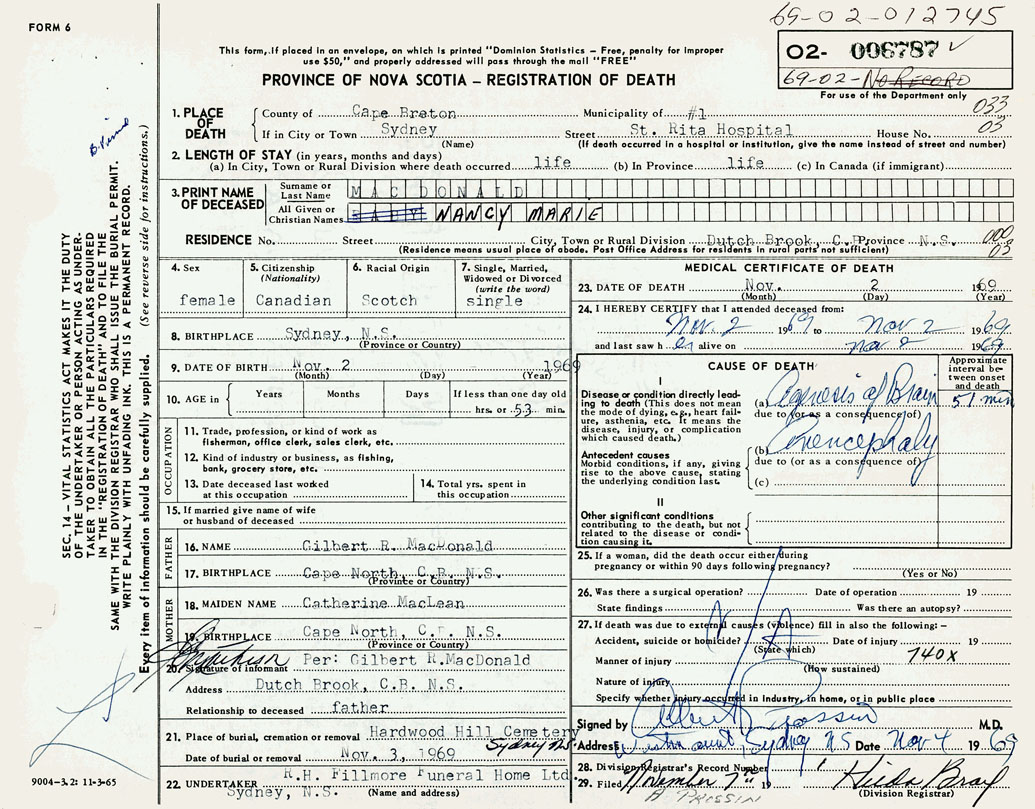 FORM 6
69-02-012745
This form, if placed in an envelope, on which is printed "Dominion Statistics – Free, penalty for improper
use $50," and properly addressed will pass through the mail "FREE"
PROVINCE OF NOVA SCOTIA – REGISTRATION OF DEATH
02- 006787
69-02- NO RECORD
For use of the Department only
033
03
1. PLACE OF DEATH
County of Cape Breton Municipality of #1
If in City or Town Sydney Street St. Rita Hospital House No.
(Name) (If death occurred in a hospital or institution, give the name instead of street and number)
2. LENGTH OF STAY (in years, months and days)
(a) In City, Town or Rural Division where death occurred life (b) In Province life (c) In Canada (if immigrant)
3. PRINT NAME OF DECEASED
Surname or Last Name MAC DONALD
All Given or Christian Names BABY NANCY MARIE
RESIDENCE No. Street City, Town or Rural Division Dutch Brook, C.B. Province N.S.
(Residence means usual place of abode. Post Office Address for residents in rural parts not sufficient)
000
03
4. Sex female
5. Citizenship (Nationality) Canadian
6. Racial Origin Scotch
7. Single, Married, Widowed or Divorced (write the word) single
8. BIRTHPLACE Sydney, N.S.
(Province or Country)
9. DATE OF BIRTH Nov. 2 1969
(Month) (Day) (Year)
10. AGE in Years Months Days If less than one day old
hrs. or 53 min.
OCCUPATION
11. Trade, profession, or kind of work as
fisherman, office clerk, sales clerk, etc.
12. Kind of industry or business, as fishing,
bank, grocery store, etc.
13. Date deceased last worked
at this occupation
14. Total yrs. spent in
this occupation
15. If married give name of wife
or husband of deceased
FATHER
16. NAME Gilbert R. MacDonald
17. BIRTHPLACE Cape North, C.B. N.S.
(Province or Country)
MOTHER
18. MAIDEN NAME Catherine MacLean
19. BIRTHPLACE Cape North, C.B. N.S.
(Province or Country)
20. Signature of informant Per: Gilbert R.MacDonald
Address Dutch Brook, C.B. N.S.
Relationship to deceased father
21. Place of burial, cremation or removal Hardwood Hill Cemetery
Sydney NS.
Date of burial or removal Nov. 3, 1969
22. UNDERTAKER R.H. Fillmore Funeral Home Ltd
Sydney, N.S. (Name and address)
MEDICAL CERTIFICATE OF DEATH
23. DATE OF DEATH Nov. 2 1969
(Month) (Day) (Year)
24. I HEREBY CERTIFY that I attended deceased from:
Nov. 2 1969 to Nov 2 1969
and last saw h er alive on Nov 2 1969
CAUSE OF DEATH
Approximate interval between onset and death
I
Disease or condition directly leading to death (This does not mean
the mode of dying, e.g., heart failure, asthenia, etc. It means the
disease, injury, or complication
which caused death.)
(a) Agenesis of Brain 51 min
due to (or as a consequence of)
Antecedent causes
Morbid conditions, if any, giving
rise to the above cause, stating
the underlying condition last.
(b) Anencephaly
due to (or as a consequence of)
(c)
II
Other significant conditions
contributing to the death, but not
related to the disease or condition causing it.
25. If a woman, did the death occur either during
pregnancy or within 90 days following pregnancy?
(Yes or No)
26. Was there a surgical operation? Date of operation 19
State findings Was there an autopsy?
27. If death was due to external causes (violence) fill in also the following: –
Accident, suicide or homicide? Date of injury 19
(State which)
N/A
740X
Manner of injury
(How sustained)
Nature of injury
Specify whether injury occurred in industry, in home, or in public place
Signed by M.D.
Address Sydney NS Date Nov 4 1969
28. Division Registrar's Record Number
29. Filed November 7th 19
(Division Registrar)
SEC. 14 – VITAL STATISTICS ACT MAKES IT THE DUTY
OF THE UNDERTAKER OR PERSON ACTING AS UNDER-
TAKER TO OBTAIN ALL THE PARTICULARS REQUIRED
IN THE "REGISTRATION OF DEATH" AND TO FILE THE
SAME WITH THE DIVISION REGISTRAR WHO SHALL ISSUE THE BURIAL PERMIT.
WRITE PLAINLY WITH UNFADING INK. THIS IS A PERMANENT RECORD.
Every item of information should be carefully supplied. (See reverse side for instructions.)
9004-3.2: 11-3-65